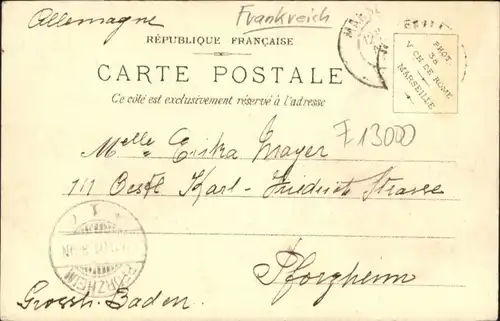 Allemagne
Frankreich
RÉPUBLIQUE FRANÇAISE
CARTE POSTALE
Ce côté est exclusivement réservé à l'adresse
PHOT.
38
V CH DE ROME
MARSEILLE
F13000
Melle Erika Mayer
111 Oestl Karl-Friedrich Strasse
Pforzheim
PFORZHEIM
Grossh. Baden.